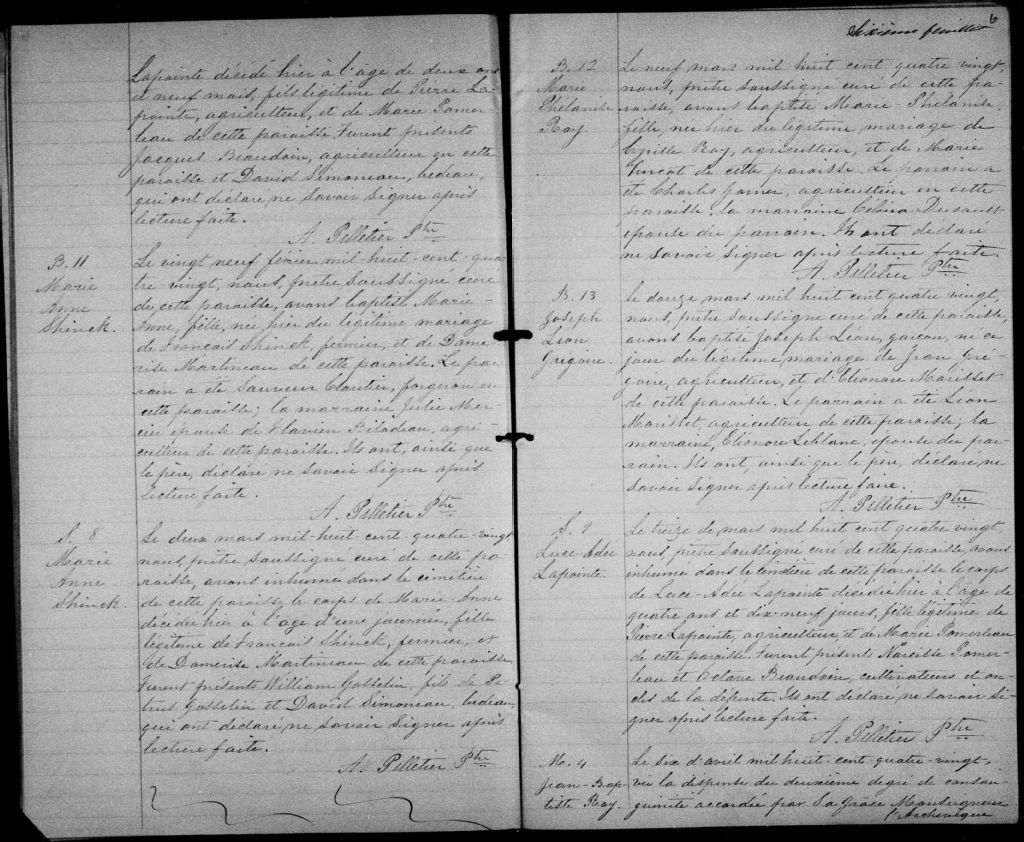 Lapointe décédé hier à l'âge de deux ans
et neuf mois, fils légitime de Pierre La-
pointe, agriculteur, et de Marie Pomer-
leau de cette paroisse. Furent présents
Jacques Beaudoin, agriculteur en cette
paroisse et David Simoneau, bedeau,
qui ont déclaré ne savoir signer après
lecture faite.
A. Pelletier Ptre
B. 11
Marie
Anne
Shinck.
Le vingt neuf fevrier mil-huit-cent-qua-
tre-vingt, nous, prêtre soussigné curé
de cette paroisse, avons baptisé Marie-
Anne, fille, née hier du légitime mariage
de Francait Shinck, fermier, et de Dame-
rise Martineau de cette paroisse. Le par-
rain a été Sauveur Cloutier, forgeron en
cette paroisse; la marraine Julie Mer-
cier épouse de Flavien Bilodeau, agri-
culteur de cette paroisse. Ils ont, ainsi que
le père, déclaré ne savoir signer après
lecture faite.
A. Pelletier Ptre
S. 8
Marie
Anne
Shinck.
Le deux mars mil-huit-cent-quatre-vingt
nous, prêtre soussigné curé de cette pa-
roisse, avons inhumé dans le cimetière
de cette paroisse le corps de Marie-Anne
décédée hier à l'âge d'une journée, fille
légitime de Francait Shinck, fermier, et
de Damerise Martineau de cette paroisse.
Furent présents William Gosselin, fils de Pé-
trus Gosselin et David Simoneau, bedeau,
qui ont déclaré ne savoir signer après
lecture faite.
A. Pelletier Ptre
6
Sixième feuillet
B. 12
Marie
Phélanise
Roy.
Le neuf mars mil huit cent quatre vingt,
nous, prêtre soussigné curé de cette pa-
roisse, avons baptisé Marie-Phélanise,
fille, née hier du légitime mariage de
Cyrille Roy, agriculteur, et de Marie
de cette paroisse. Le parrain a
été Charles agriculteur en cette
paroisse; la marraine Célina Dussault
épouse du parrain. Ils ont déclaré
ne savoir signer après lecture faite.
A. Pelletier Ptre
B. 13
Joseph
Léon
Grégoire.
Le douze mars mil huit cent quatre vingt,
nous, prêtre soussigné curé de cette paroisse,
avons baptisé Joseph Léon, garcon, né ce
jour du légitime mariage de Jean Gré-
goire, agriculteur, et d'Eléonore Morisset
de cette paroisse. Le parrain a été Léon
Morisset, agriculteur de cette paroisse; la
marraine, Eléonore Leblanc, épouse du par-
rain. Ils ont, ainsi que le père, déclaré ne
savoir signer après lecture faire.
A. Pelletier Ptre
S. 9
Luce-Adée
Lapointe.
Le treize de mars mil huit cent quatre vingt,
nous, prêtre soussigné curé de cette paroisse, avons
inhumé dans le cimetière de cette paroisse le corps
de Luce-Adée Lapointe décédée hier à l'âge de
quatre ans et dix-neuf jours, fille légitime de
Pierre Lapointe, agriculteur, et de Marie Pomerleau
de cette paroisse. Furent présents Narcisse Pomer-
leau et Octave Beaudoin, cultivateurs et on-
cles de la défunte. Ils ont déclaré ne savoir si-
gner après lecture faite.
A. Pelletier Ptre
M. 4
Jean-Bap-
tiste Roy.
Le six d'avril mil huit-cent-quatre-vingt,
vu la dispense du deuxième degré de consan-
guinité accordée par Sa Grace Monseigneur
l'Archevêque